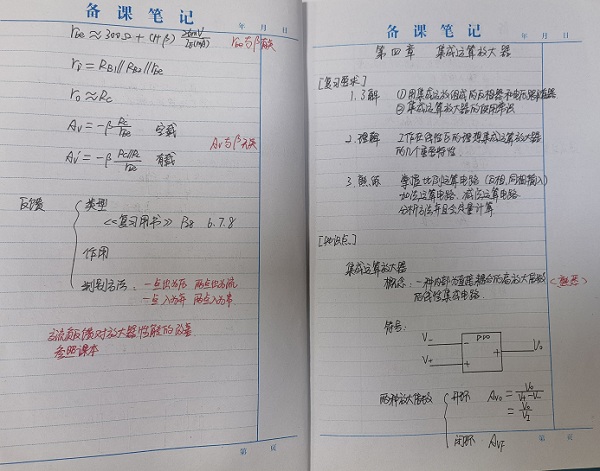 备课笔记
年 月 日
rbe ≈ 300Ω + (1+β) 26mV/IE(mA)
ri = RB1 // RB2 // rbe
ro ≈ RC
Av = -β RC/rbe 空载
Av与β无关
Av' = -β RC//RL/rbe 有载
反馈
类型
<<复习用书>> P38 6.7.8
作用
判别方法: 一点出为压 两点出为流
一点入为并 两点入为串
交流负反馈对放大器性能的改善
参照课本
第 页
备课笔记
年 月 日
第四章 集成运算放大器
[复习要求]
1.了解 ①用集成运放组成的反相器和电压跟随器
②集成运算放大器的使用常识
2.理解 工作在线性区的理想集成运算放大器
的几个重要特性.
3.熟练 掌握比例运算电路(反相,同相输入)
加法运算电路、减法运算电路
分析方法并且会用量计算
[知识点]
集成运算放大器
概念: 一种内部为直接耦合的高放大倍数
的线性集成电路.
符号:
V-
V+
-
+
+
Vo
两种放大倍数
开环 Avo = Vo/(V+-V-)
= Vo/VI
闭环 AVF
第 页